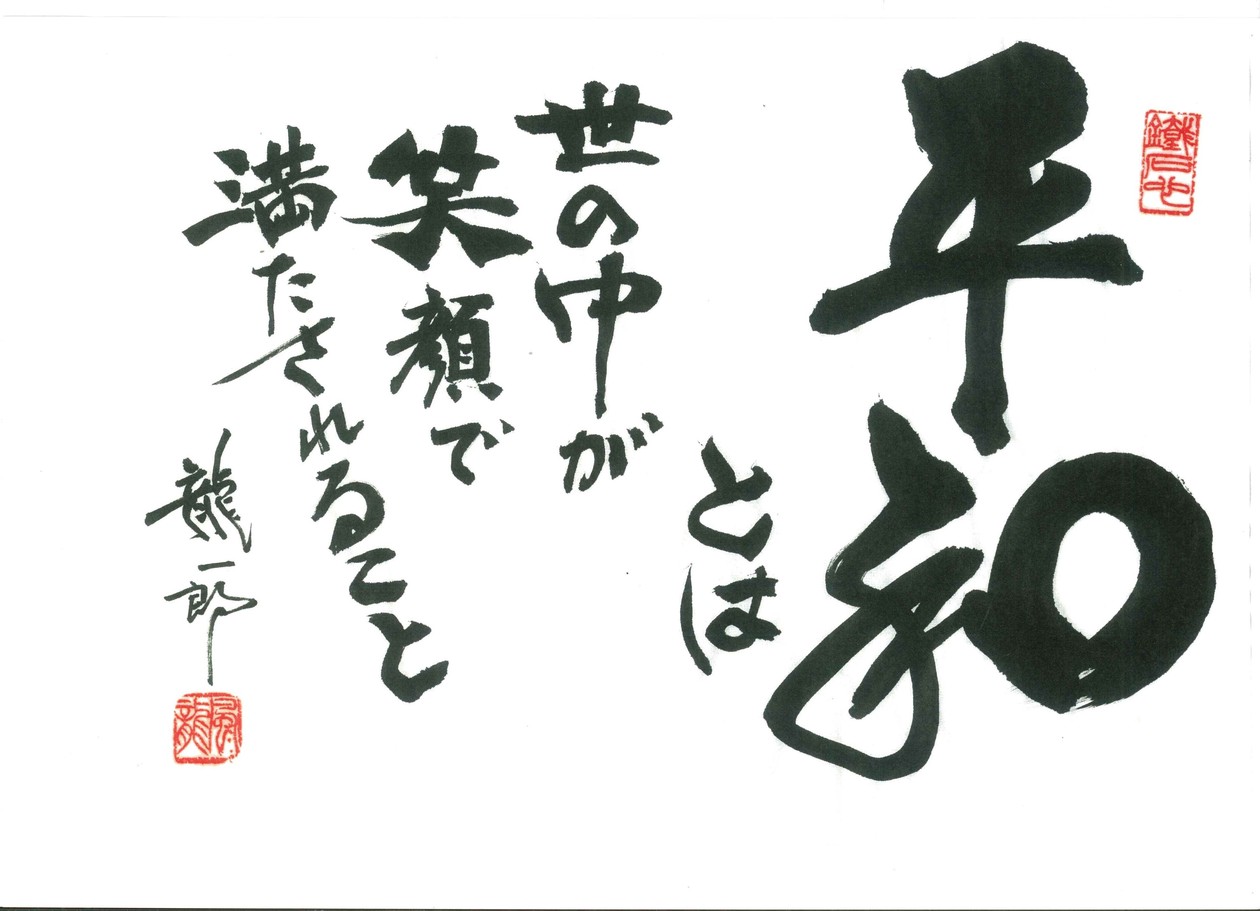 平和
とは
世の中が
笑顔で
満たされること
龍一郎